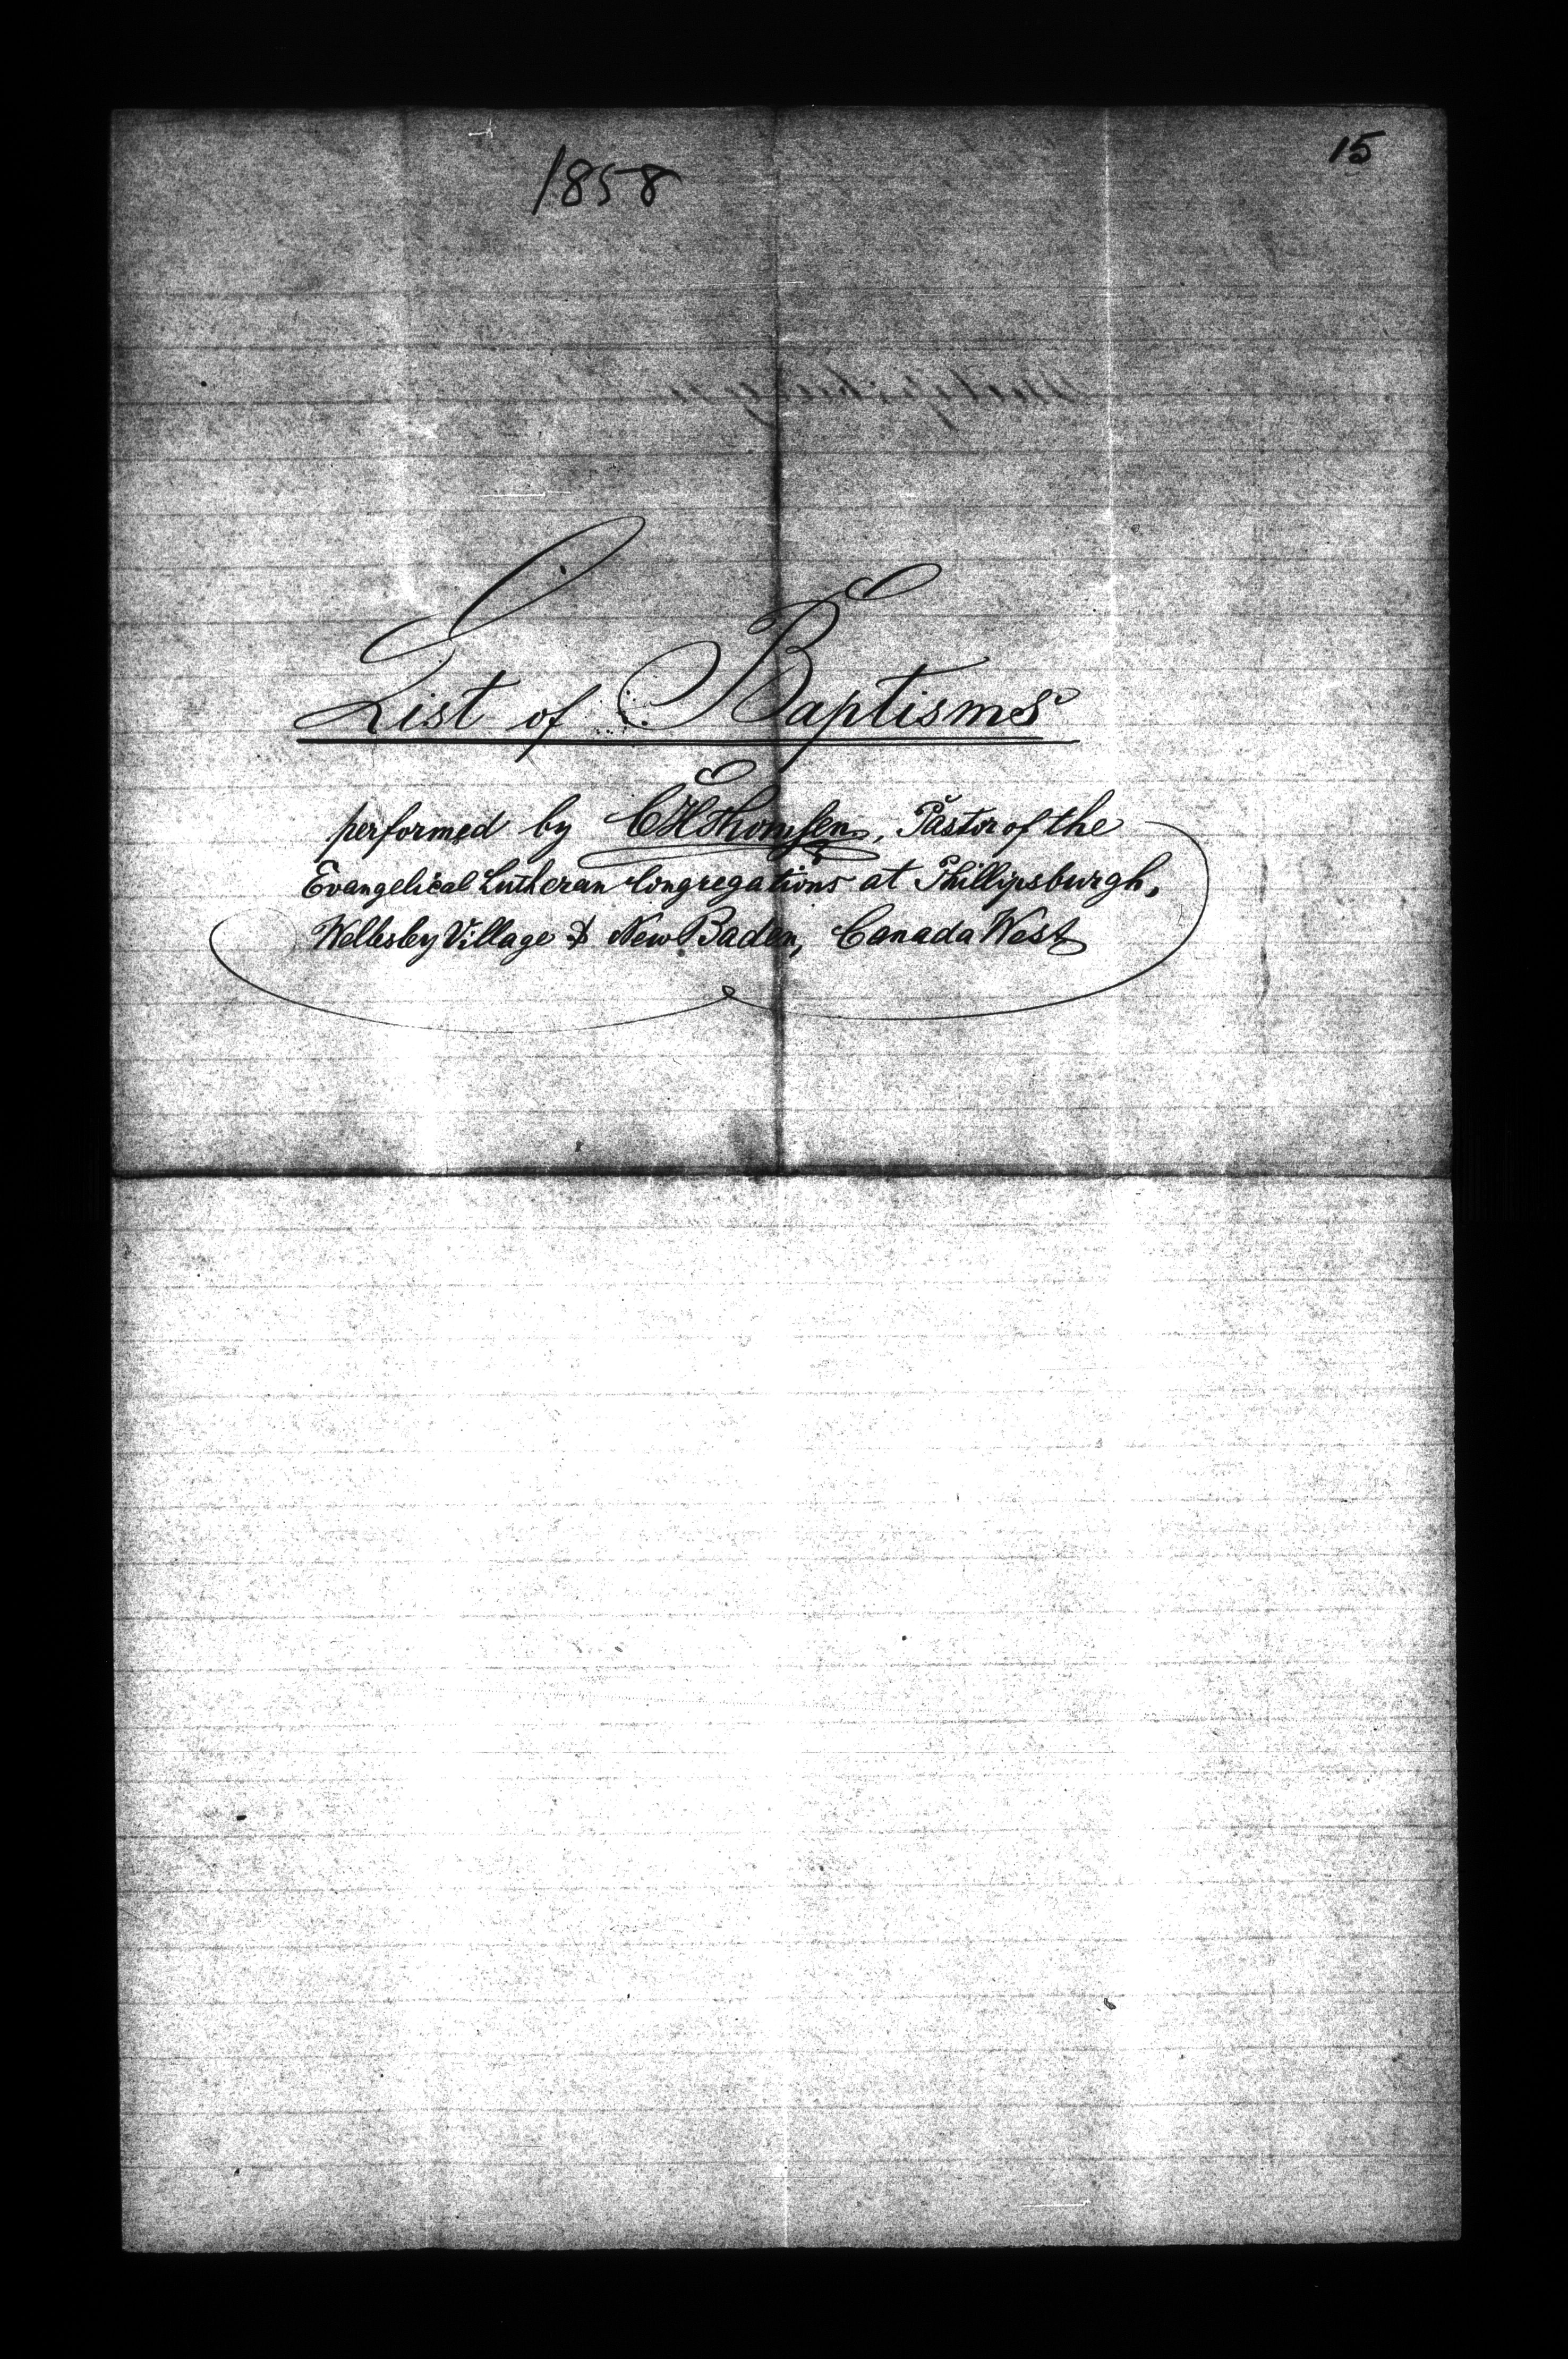 15
1858
List of Baptisms
performed by CHThomsen, Pastor of the
Evangelical Lutheran Congregations at Phillipsburgh,
Wellesley Village & New Baden, Canada West